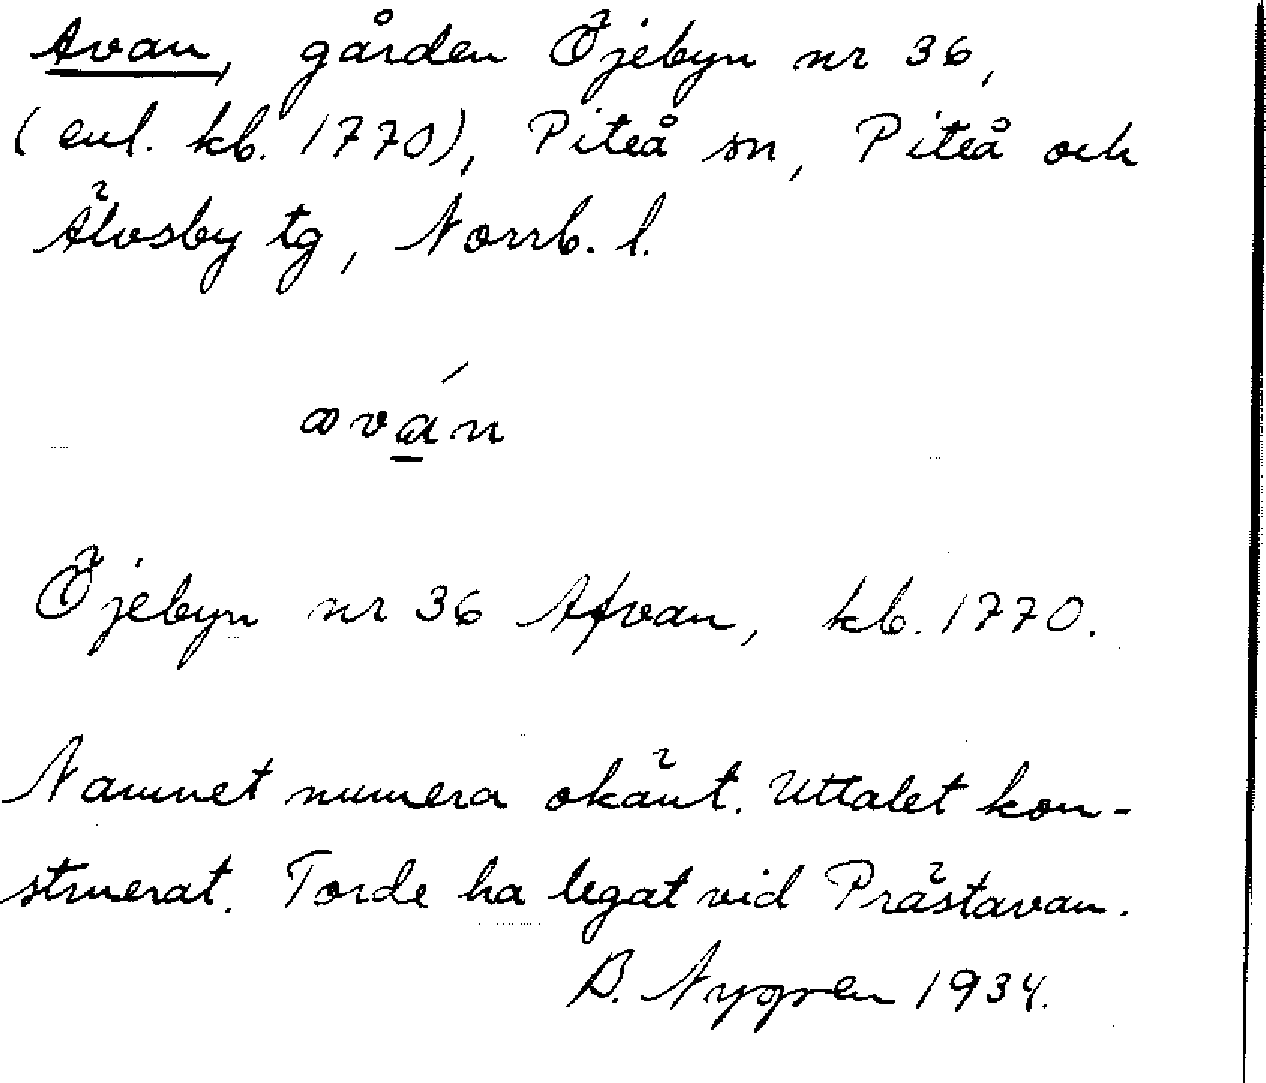 Avan, gården Öjebyn nr 36,
(enl. kb. 1770), Piteå sn, Piteå och
Älvsby tg, Norrb. l.
aván
Öjebyn nr 36 Afvan, kb. 1770.
Namnet numera okänt. Uttalet kon-
struerat. Torde ha legat vid Prästavan.
B. Nygren 1934.